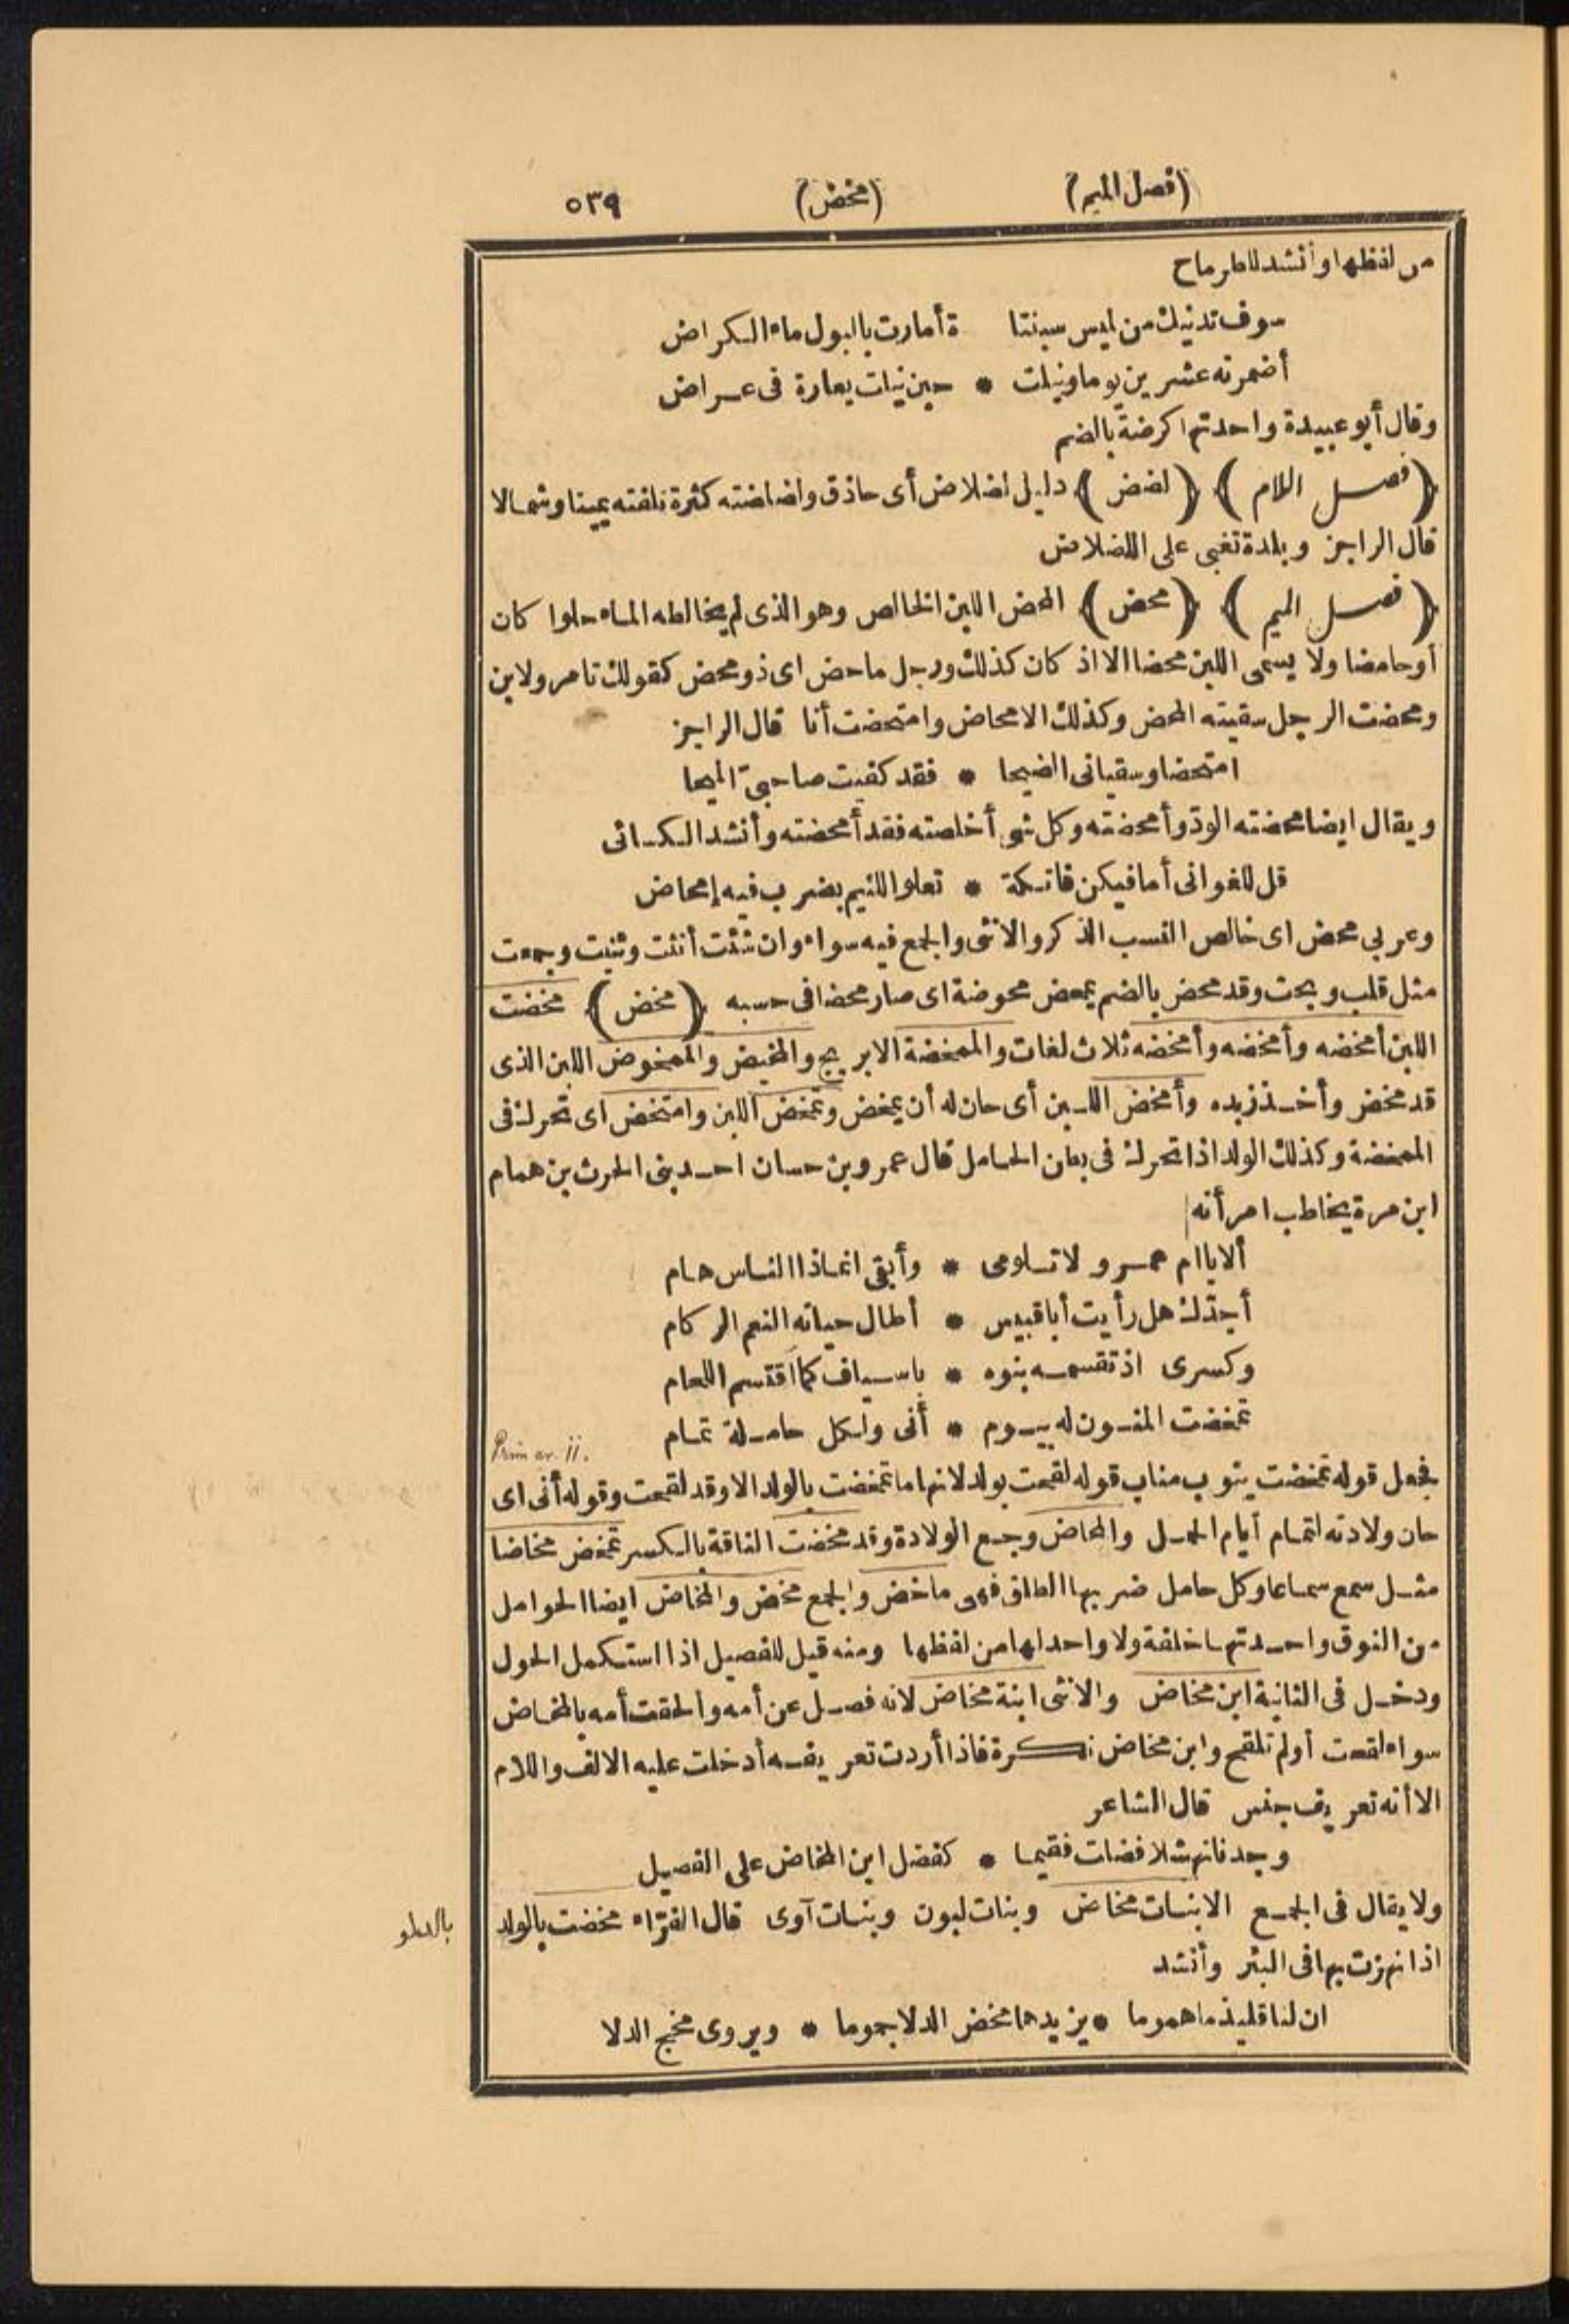 (فصل الميم) (مخض) ٥٣٩
من لفظها وأنشد للطرماح
سوف تدنيك من لميس سبنتا ة أمارت بالبول ماء الكراض
أضمرته عشرين يوما ونيلت * حين نيلت يعارة فى عراض
وقال أبو عبيدة واحدتها كرضة بالضم
﴿فصل اللام﴾ ﴿لضض﴾ دليل لضلاض أى حاذق ولضلضته كثرة تلفته يمينا وشمالا
قال الراجز وبلدة تغبى على اللضلاض
﴿فصل الميم﴾ ﴿محض﴾ المحض اللبن الخالص وهو الذى لم يخالطه الماء حلوا كان
أو حامضا ولا يسمى اللبن محضا الا اذ كان كذلك ورجل ماحض اى ذو محض كقولك تامر ولابن
ومحضت الرجل سقيته المحض وكذلك الامحاض وامتحضت أنا قال الراجز
امتحضا وسقيانى الضيحا * فقد كفيت صاحبىّ الميحا
ويقال ايضا محضته الودّ وأمحضته وكل شئ أخلصته فقد أمحضته وأنشد الكسائى
قل للغوانى أما فيكن فاتكة * تعلو اللئيم بضرب فيه إمحاض
وعربى محض اى خالص النسب الذكر والانثى والجمع فيه سواء وان شئت أنثت وثنيت وجمعت
مثل قلب وبحت وقد محض بالضم يمحض محوضة اى صار محضا فى حسبه ﴿مخض﴾ مخضت
اللبن أمخضه وأمخضه وأمخضه ثلاث لغات والممخضة الابريج والمخيض والممخوض اللبن الذى
قد مخض وأخذ زبده وأمخض اللبن أى حان له أن يمخض وتمخض اللبن وامتخض اى تحرك فى
الممخضة وكذلك الولد اذا تحرك فى بطن الحامل قال عمرو بن حسان احد بنى الحرث بن همام
ابن مرة يخاطب امرأته
ألا ياام عمرو لا تلومى * وأبقى انما ذا الناس هام
أجدّك هل رأيت أبا قبيس * أطال حياته النعم الركام
وكسرى اذ تقسمه بنوه * باسياف كما اقتسم اللحام
تمخضت المنون له بيوم * أنى ولكل حاملة تمام
Prim ar. ii.
فجعل قوله تمخضت ينوب مناب قوله لقحت بولد لانها ما تمخضت بالولد الا وقد لقحت وقوله أنى اى
حان ولادته لتمام أيام الحمل والمخاض وجع الولادة وقد مخضت الناقة بالكسر تمخض مخاضا
مثل سمع سماعا وكل حامل ضربها الطلق فهى ماخض والجمع مخض والمخاض ايضا الحوامل
من النوق واحدتها خلفة ولا واحد لها من لفظها ومنه قيل للفصيل اذا استكمل الحول
ودخل فى الثانية ابن مخاض والانثى ابنة مخاض لانه فصل عن أمه وألحقت أمه بالمخاض
سواء لقحت أو لم تلقح وابن مخاض نكرة فاذا أردت تعريفه أدخلت عليه الالف واللام
الا أنه تعريف جنس قال الشاعر
وجدنا نهشلا فضلت فقيما * كفضل ابن المخاض على الفصيل
ولا يقال فى الجمع الا بنات مخاض وبنات لبون وبنات آوى قال الفرّاء مخضت بالولد
بالدلو
اذا نهزت بها فى البئر وأنشد
ان لنا قليذما هموما * يزيدها مخض الدلا جموما * ويروى مخج الدلا